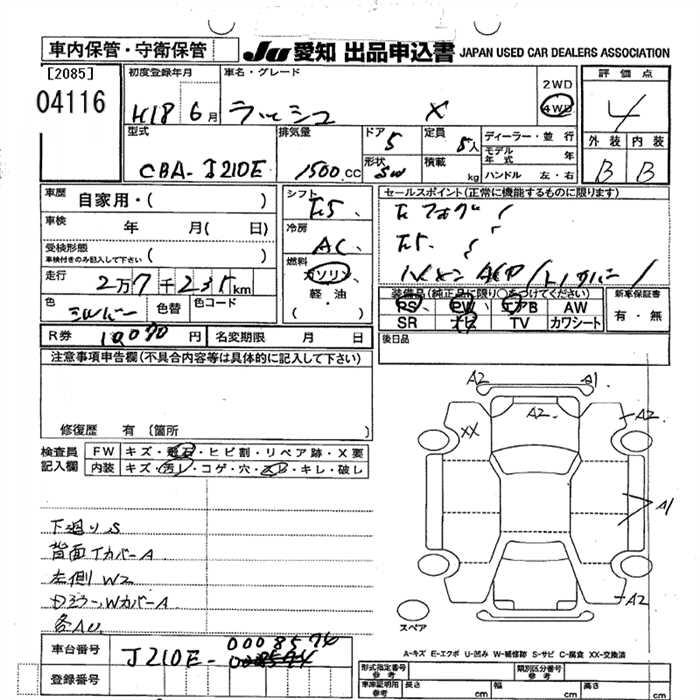 車内保管・守衛保管
Ju 愛知 出品申込書 JAPAN USED CAR DEALERS ASSOCIATION
[2085]
04116
初度登録年月
H18 6月
車名・グレード
ラッシュ X
2WD
4WD
評価点
4
型式
CBA-J210E
排気量
1500 cc
ドア
5
定員
5人
形状
SW
積載
kg
ディーラー・並 行
モデル年式 年
ハンドル 左・右
外装 内装
B B
車歴
自家用・( )
車検
年 月( 日)
受検形態
車検付きのみ記入して下さい ( )
走行
2万7千235km
色
シルバー
色替
色コード
シフト
F5
冷房
AC
燃料
ガソリン
軽・油
・( )
セールスポイント(正常に機能するものに限ります)
装備品(純正品に限り○をつけてください)
PS PW エアB AW
SR ナビ TV カワシート
新車保証書
有・無
R券 10070円
名変期限 月 日
後日品
注意事項申告欄(不具合内容等は具体的に記入して下さい)
修復歴 有 (箇所 )
検査員記入欄
FW キズ・飛石・ヒビ割・リペア跡・X要
内装 キズ・汚レ・コゲ・穴・スレ・キレ・破レ
下廻りS
背面TカバーA
左側W2
WカバーA
各AU
A2 A1
A2 A2
XX
A1
A2
スペア
A-キズ E-エクボ U-凹み W-補修跡 S-サビ C-腐食 XX-交換済
車台番号
J210E-0008574
登録番号
形式指定番号 参考
類別区分番号 参考
車庫証明用参考 長さ cm 幅 cm 高さ cm